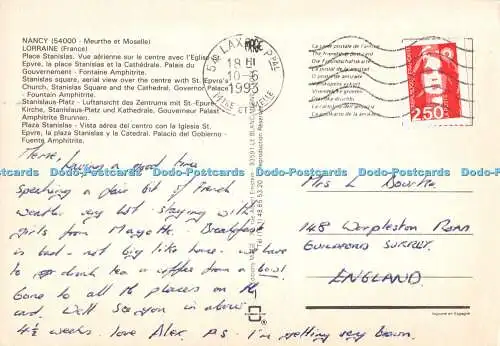 NANCY (54000 - Meurthe et Moselle)
LORRAINE (France)
Place Stanislas. Vue aérienne sur le centre avec l'Eglise St
Epvre, la place Stanislas et la Cathédrale. Palais du
Gouvernement - Fontaine Amphitrite.
Stanislas square, aerial view over the centre with St. Epvre's
Church, Stanislas Square and the Cathedral, Governor Palace
- Fountain Amphitrite.
Stanislaus-Platz - Luftansicht des Zentrums mit St.
Kirche, Stanislaus-Platz und Kathedrale, Gouverneur Palast
Amphitrite Brunnen.
Plaza Stanislas - Vista aérea del centro con la Iglesia St.
Epvre, la plaza Stanislas y la Catedral. Palacio del Gobierno -
Fuente Amphitrite.
54 LAXOU PPAL
18 H
10-6
1993
MTHE ET MLLE
La carte postale de l'amitié
2,50
having a good time
speaking a fair bit of French
weather very hot. staying with
girls from Mayotte. Breakfast
is bad - not big like home - we have
to drink tea & coffee from a bowl
Gone to all the places on the
card. Well see you in about
4½ weeks. love Alex. P.S. I'm getting very brown.
Mrs L
148 Worplesdon Road
GUILDFORD SURREY.
ENGLAND.
Imprimé en Espagne
www.delcampe.net
a-z-postcards